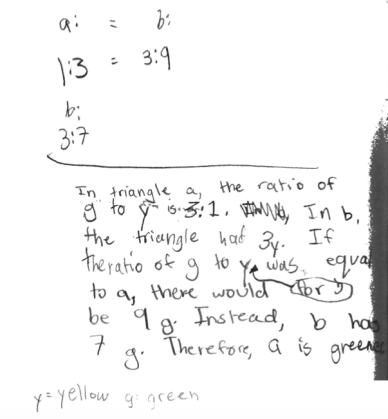 a: = b:
1:3 = 3:9
b:
3:7
In triangle a, the ratio of
g to y is 3:1. In b,
the triangle had 3y. If
the ratio of g to y was equal
to a, there would for y
be 9 g. Instead, b has
7 g. Therefore, a is greener
y=yellow g: green